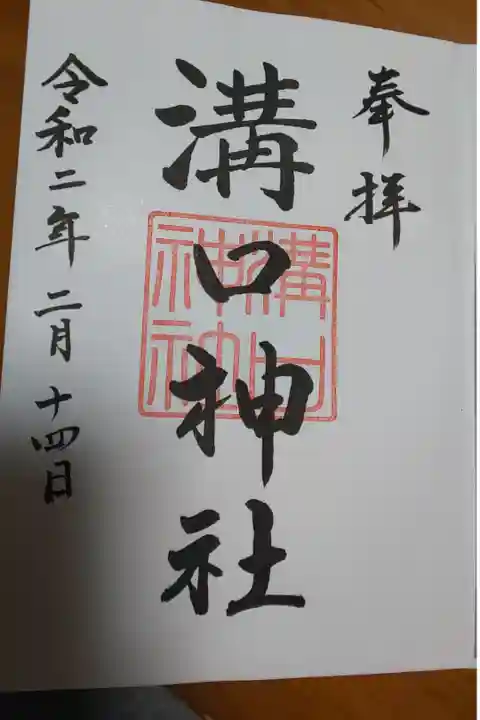 奉拝
溝口神社
溝口
神社
令和二年二月十四日